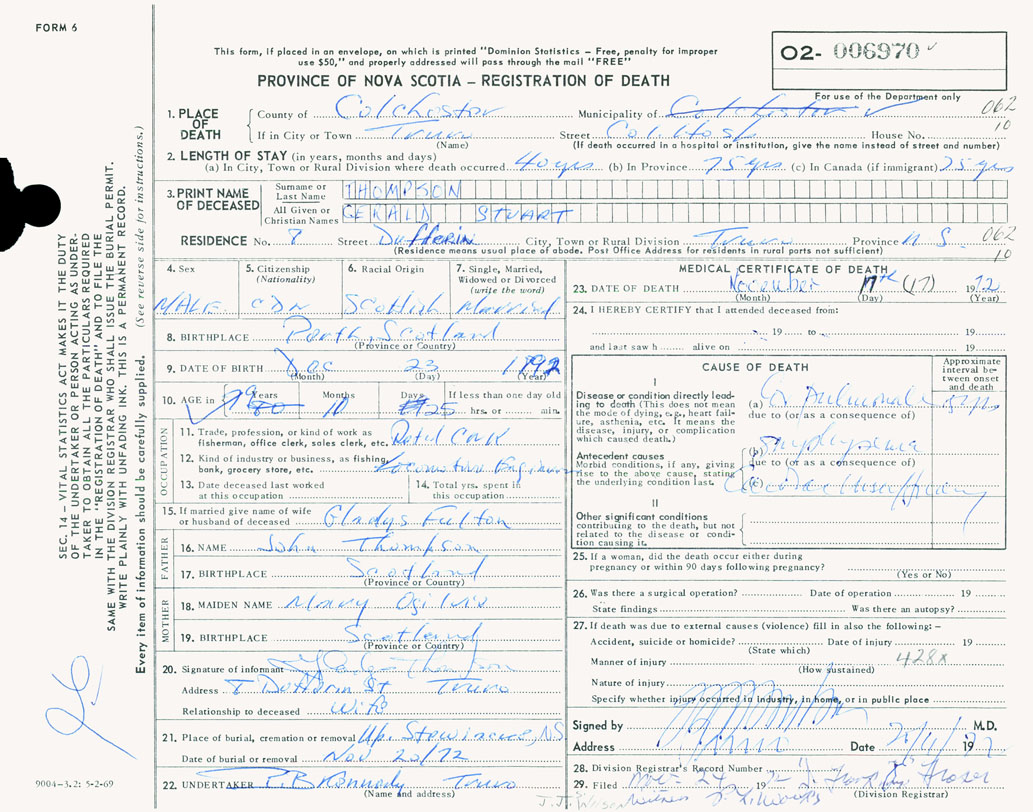 FORM 6
This form, if placed in an envelope, on which is printed "Dominion Statistics – Free, penalty for improper
use $50," and properly addressed will pass through the mail "FREE"
PROVINCE OF NOVA SCOTIA – REGISTRATION OF DEATH
02- 006970
For use of the Department only
1. PLACE OF DEATH
County of Colchester Municipality of Colchester 062
If in City or Town Truro Street Col. Hosp House No. 10
(Name) (If death occurred in a hospital or institution, give the name instead of street and number)
2. LENGTH OF STAY (in years, months and days)
(a) In City, Town or Rural Division where death occurred 40 yrs. (b) In Province 75 yrs. (c) In Canada (if immigrant) 75 yrs
3. PRINT NAME OF DECEASED
Surname or Last Name THOMPSON
All Given or Christian Names GERALD STUART
RESIDENCE No. 8 Street Dufferin City, Town or Rural Division Truro Province N.S. 062
(Residence means usual place of abode. Post Office Address for residents in rural parts not sufficient) 10
4. Sex MALE
5. Citizenship (Nationality) CDN
6. Racial Origin Scottish
7. Single, Married, Widowed or Divorced (write the word) Married
8. BIRTHPLACE Perth, Scotland
(Province or Country)
9. DATE OF BIRTH Dec 23 1892
(Month) (Day) (Year)
10. AGE in 79 Years 10 Months 25 Days If less than one day old hrs. or min.
OCCUPATION
11. Trade, profession, or kind of work as fisherman, office clerk, sales clerk, etc. Retd CNR
12. Kind of industry or business, as fishing, bank, grocery store, etc. Locomotive Engineer
13. Date deceased last worked at this occupation
14. Total yrs. spent in this occupation
15. If married give name of wife or husband of deceased Gladys Fulton
FATHER
16. NAME John Thompson
17. BIRTHPLACE Scotland
(Province or Country)
MOTHER
18. MAIDEN NAME Mary Ogilvie
19. BIRTHPLACE Scotland
(Province or Country)
20. Signature of informant Thompson
Address 8 Dufferin St Truro
Relationship to deceased Wife
21. Place of burial, cremation or removal Up. Stewiacke, NS
Date of burial or removal Nov 20/72
22. UNDERTAKER Kennedy Truro
(Name and address)
MEDICAL CERTIFICATE OF DEATH
23. DATE OF DEATH November 17th (17) 1972
(Month) (Day) (Year)
24. I HEREBY CERTIFY that I attended deceased from:
19 to 19
and last saw h alive on 19
CAUSE OF DEATH
Approximate interval between onset and death
I
Disease or condition directly leading to death (This does not mean the mode of dying, e.g., heart failure, asthenia, etc. It means the disease, injury, or complication which caused death.)
(a) Cor Pulmonale
due to (or as a consequence of)
Antecedent causes
Morbid conditions, if any, giving rise to the above cause, stating the underlying condition last.
(b) Emphysema
due to (or as a consequence of)
(c)
II
Other significant conditions contributing to the death, but not related to the disease or condition causing it.
25. If a woman, did the death occur either during pregnancy or within 90 days following pregnancy?
(Yes or No)
26. Was there a surgical operation? Date of operation 19
State findings Was there an autopsy?
27. If death was due to external causes (violence) fill in also the following: –
Accident, suicide or homicide? Date of injury 19
(State which)
Manner of injury 428x
(How sustained)
Nature of injury
Specify whether injury occurred in industry, in home, or in public place
Signed by M.D.
Address Truro Date 19
28. Division Registrar's Record Number
29. Filed Nov 24 1972 Fraser
(Division Registrar)
Witness
SEC. 14 – VITAL STATISTICS ACT MAKES IT THE DUTY
OF THE UNDERTAKER OR PERSON ACTING AS UNDER-
TAKER TO OBTAIN ALL THE PARTICULARS REQUIRED
IN THE "REGISTRATION OF DEATH" AND TO FILE THE
SAME WITH THE DIVISION REGISTRAR WHO SHALL ISSUE THE BURIAL PERMIT.
WRITE PLAINLY WITH UNFADING INK. THIS IS A PERMANENT RECORD.
Every item of information should be carefully supplied. (See reverse side for instructions.)
9004-3.2: 5-2-69